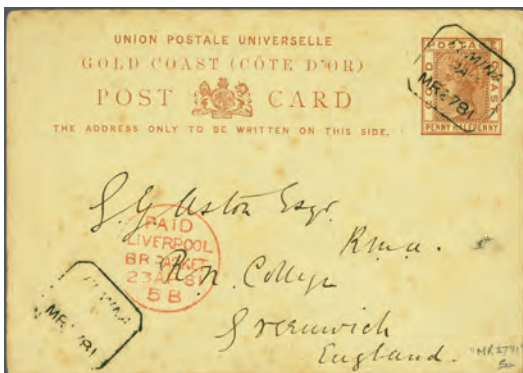 UNION POSTALE UNIVERSELLE
GOLD COAST (CÔTE D'OR)
POST CARD
THE ADDRESS ONLY TO BE WRITTEN ON THIS SIDE.
POSTAGE
GOLD
COAST
PENNY HALFPENNY
ELMINA
MR 27 81
G. G. Aston Esqr.
R.M.A.
R. N. College
Greenwich
England.
PAID
LIVERPOOL
BR. PACKET
23 AP 81
5 B
ELMINA
MR 27 81
"MR 2781"